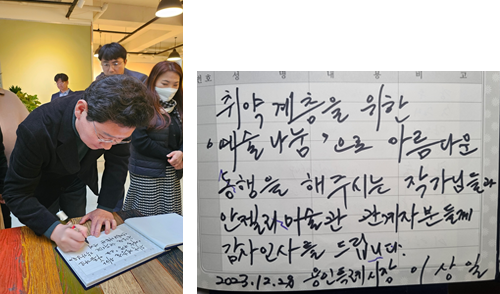 번호 성 명 내 용 비 고
취약계층을 위한
'예술나눔'으로 아름다운
동행을 해주시는 작가님들과
안젤리 미술관 관계자분들께
감사인사를 드립니다.
2023.12.28 용인특례시장 이상일